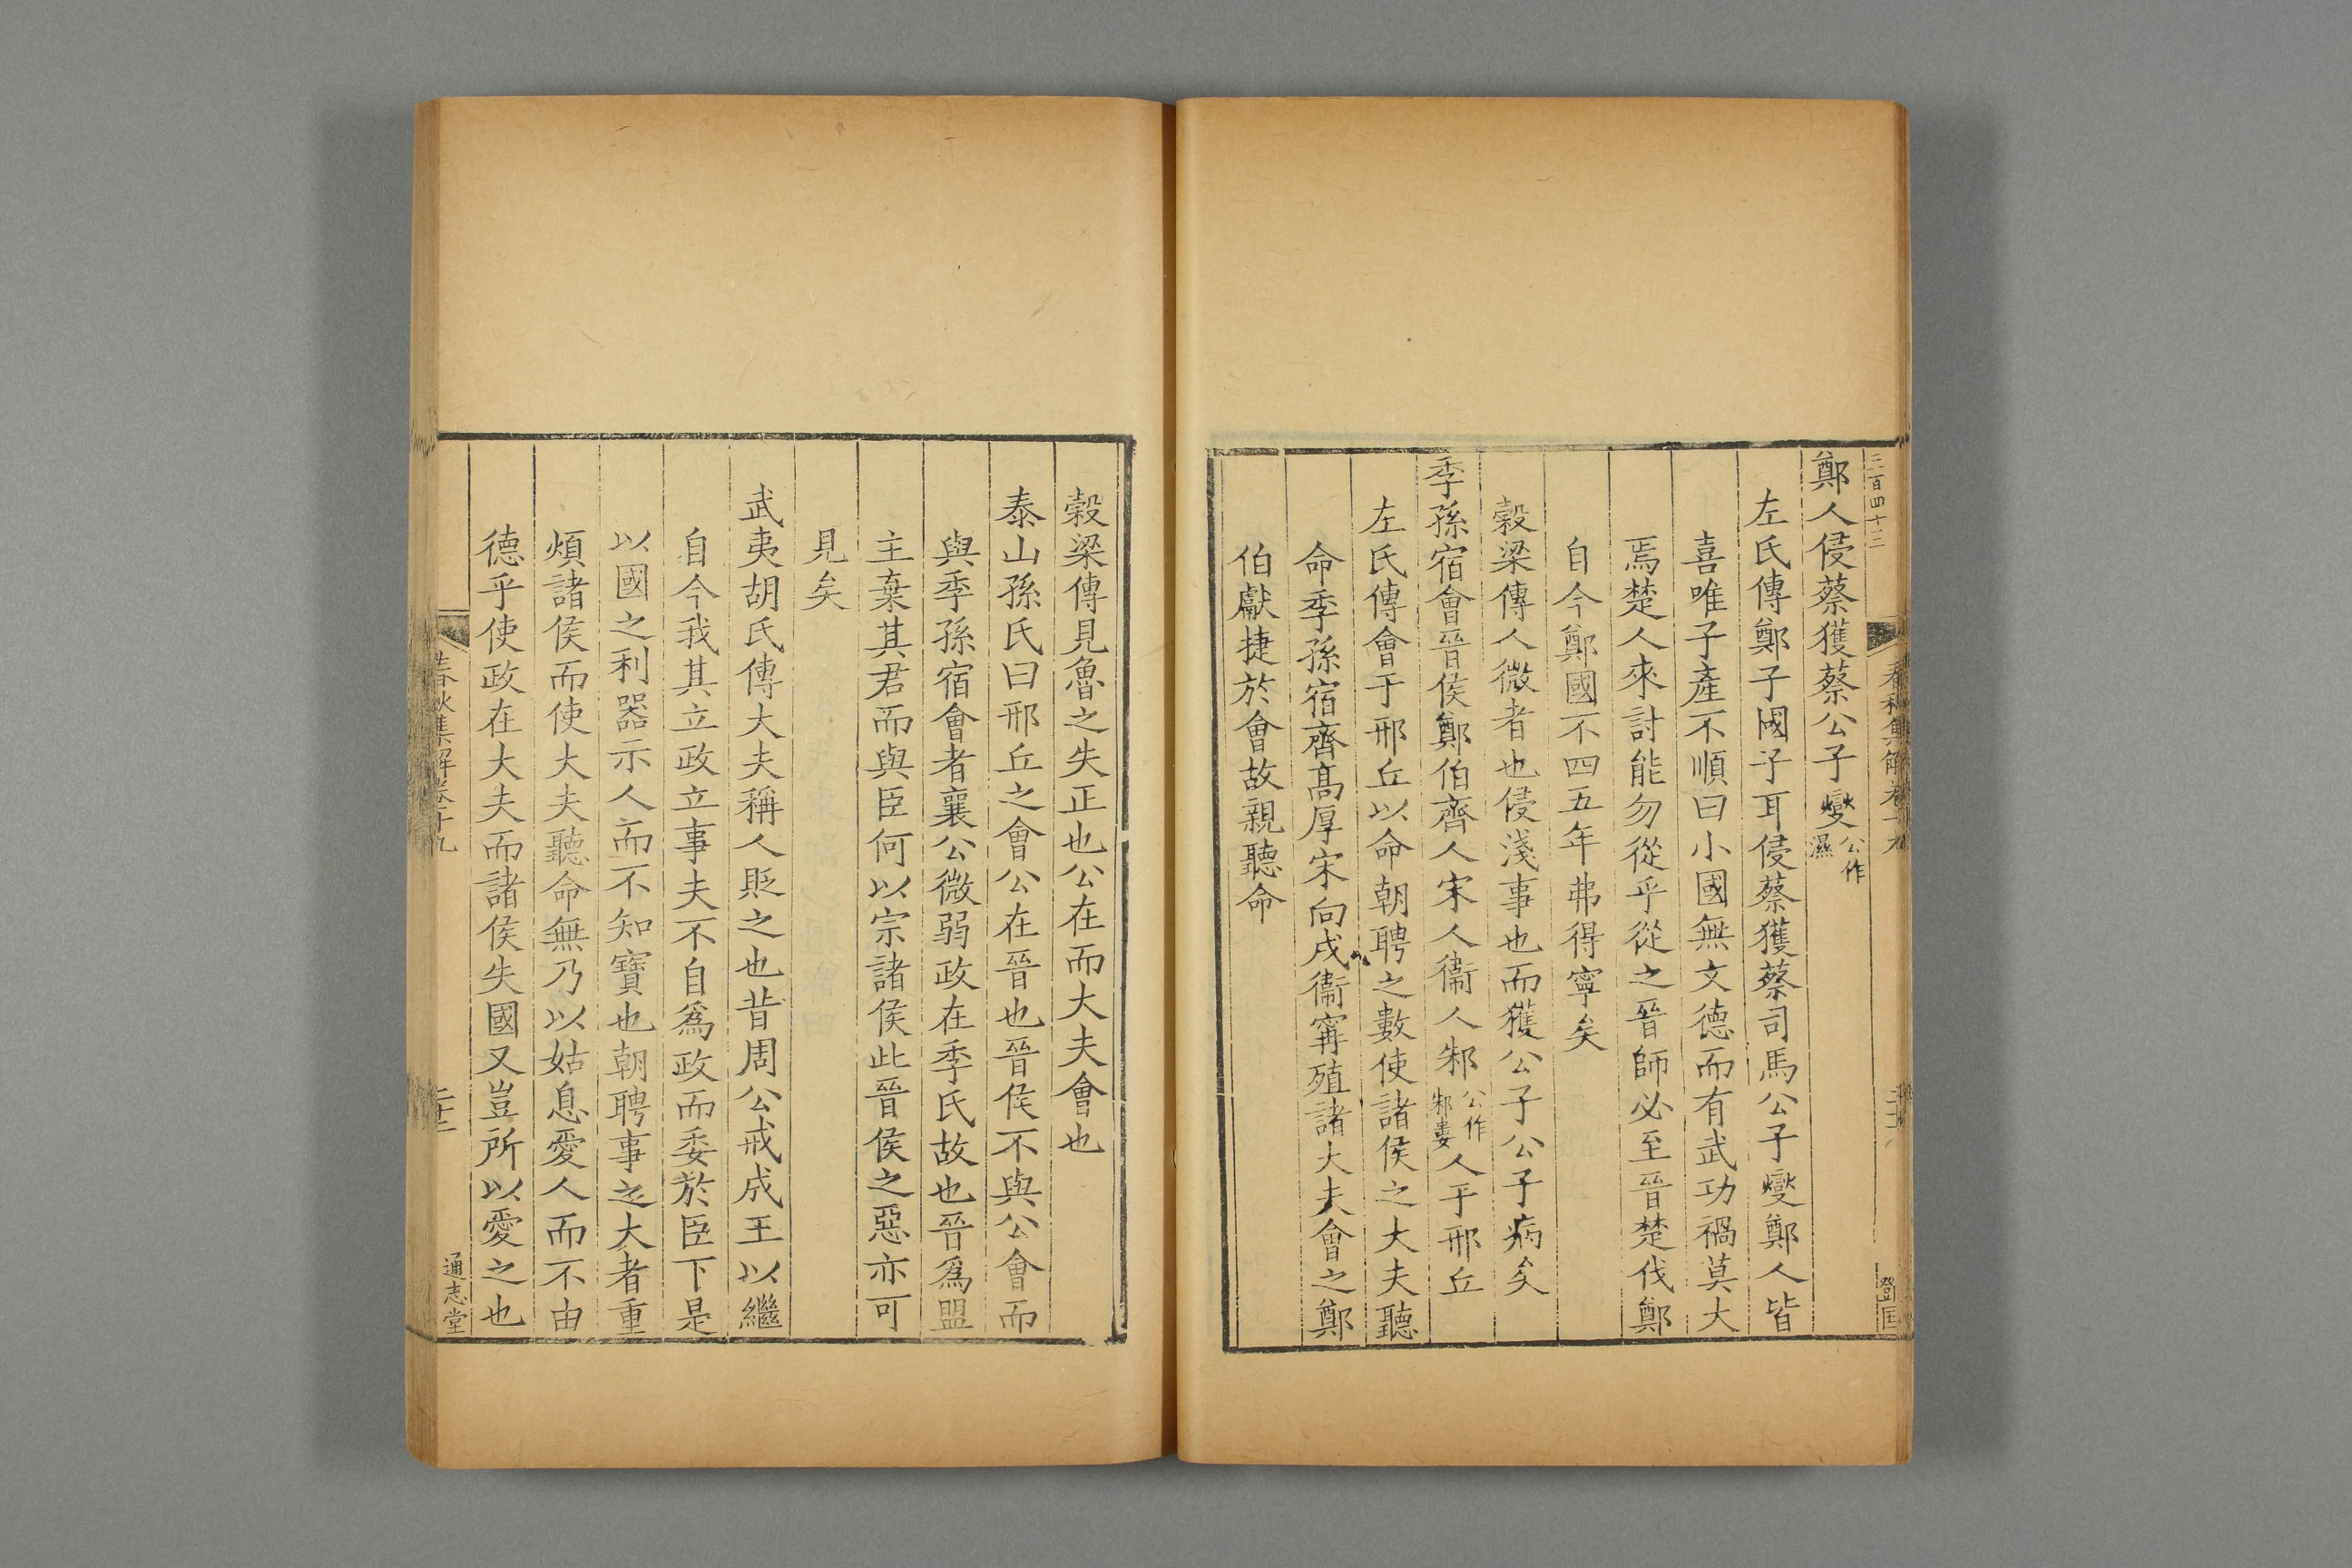 三百四十三
春秋集解卷十九
鄭人侵蔡獲蔡公子燮公作濕
左氏傳鄭子國子耳侵蔡獲蔡司馬公子燮鄭人皆
喜唯子產不順曰小國無文德而有武功禍莫大
焉楚人來討能勿從乎從之晉師必至晉楚伐鄭
自今鄭國不四五年弗得寧矣
穀梁傳人微者也侵淺事也而獲公子公子病矣
季孫宿會晉侯鄭伯齊人宋人衞人邾公作邾婁人于邢丘
左氏傳會于邢丘以命朝聘之數使諸侯之大夫聽
命季孫宿齊髙厚宋向戌衞甯殖諸大夫會之鄭
伯獻捷於會故親聽命
穀梁傳見魯之失正也公在而大夫會也
泰山孫氏曰邢丘之會公在晉也晉侯不與公會而
與季孫宿會者襄公微弱政在季氏故也晉爲盟
主棄其君而與臣何以宗諸侯此晉侯之惡亦可
見矣
武夷胡氏傳大夫稱人貶之也昔周公戒成王以繼
自今我其立政立事夫不自爲政而委於臣下是
以國之利器示人而不知寶也朝聘事之大者重
煩諸侯而使大夫聽命無乃以姑息愛人而不由
德乎使政在大夫而諸侯失國又豈所以愛之也
春秋集解卷十九
通志堂